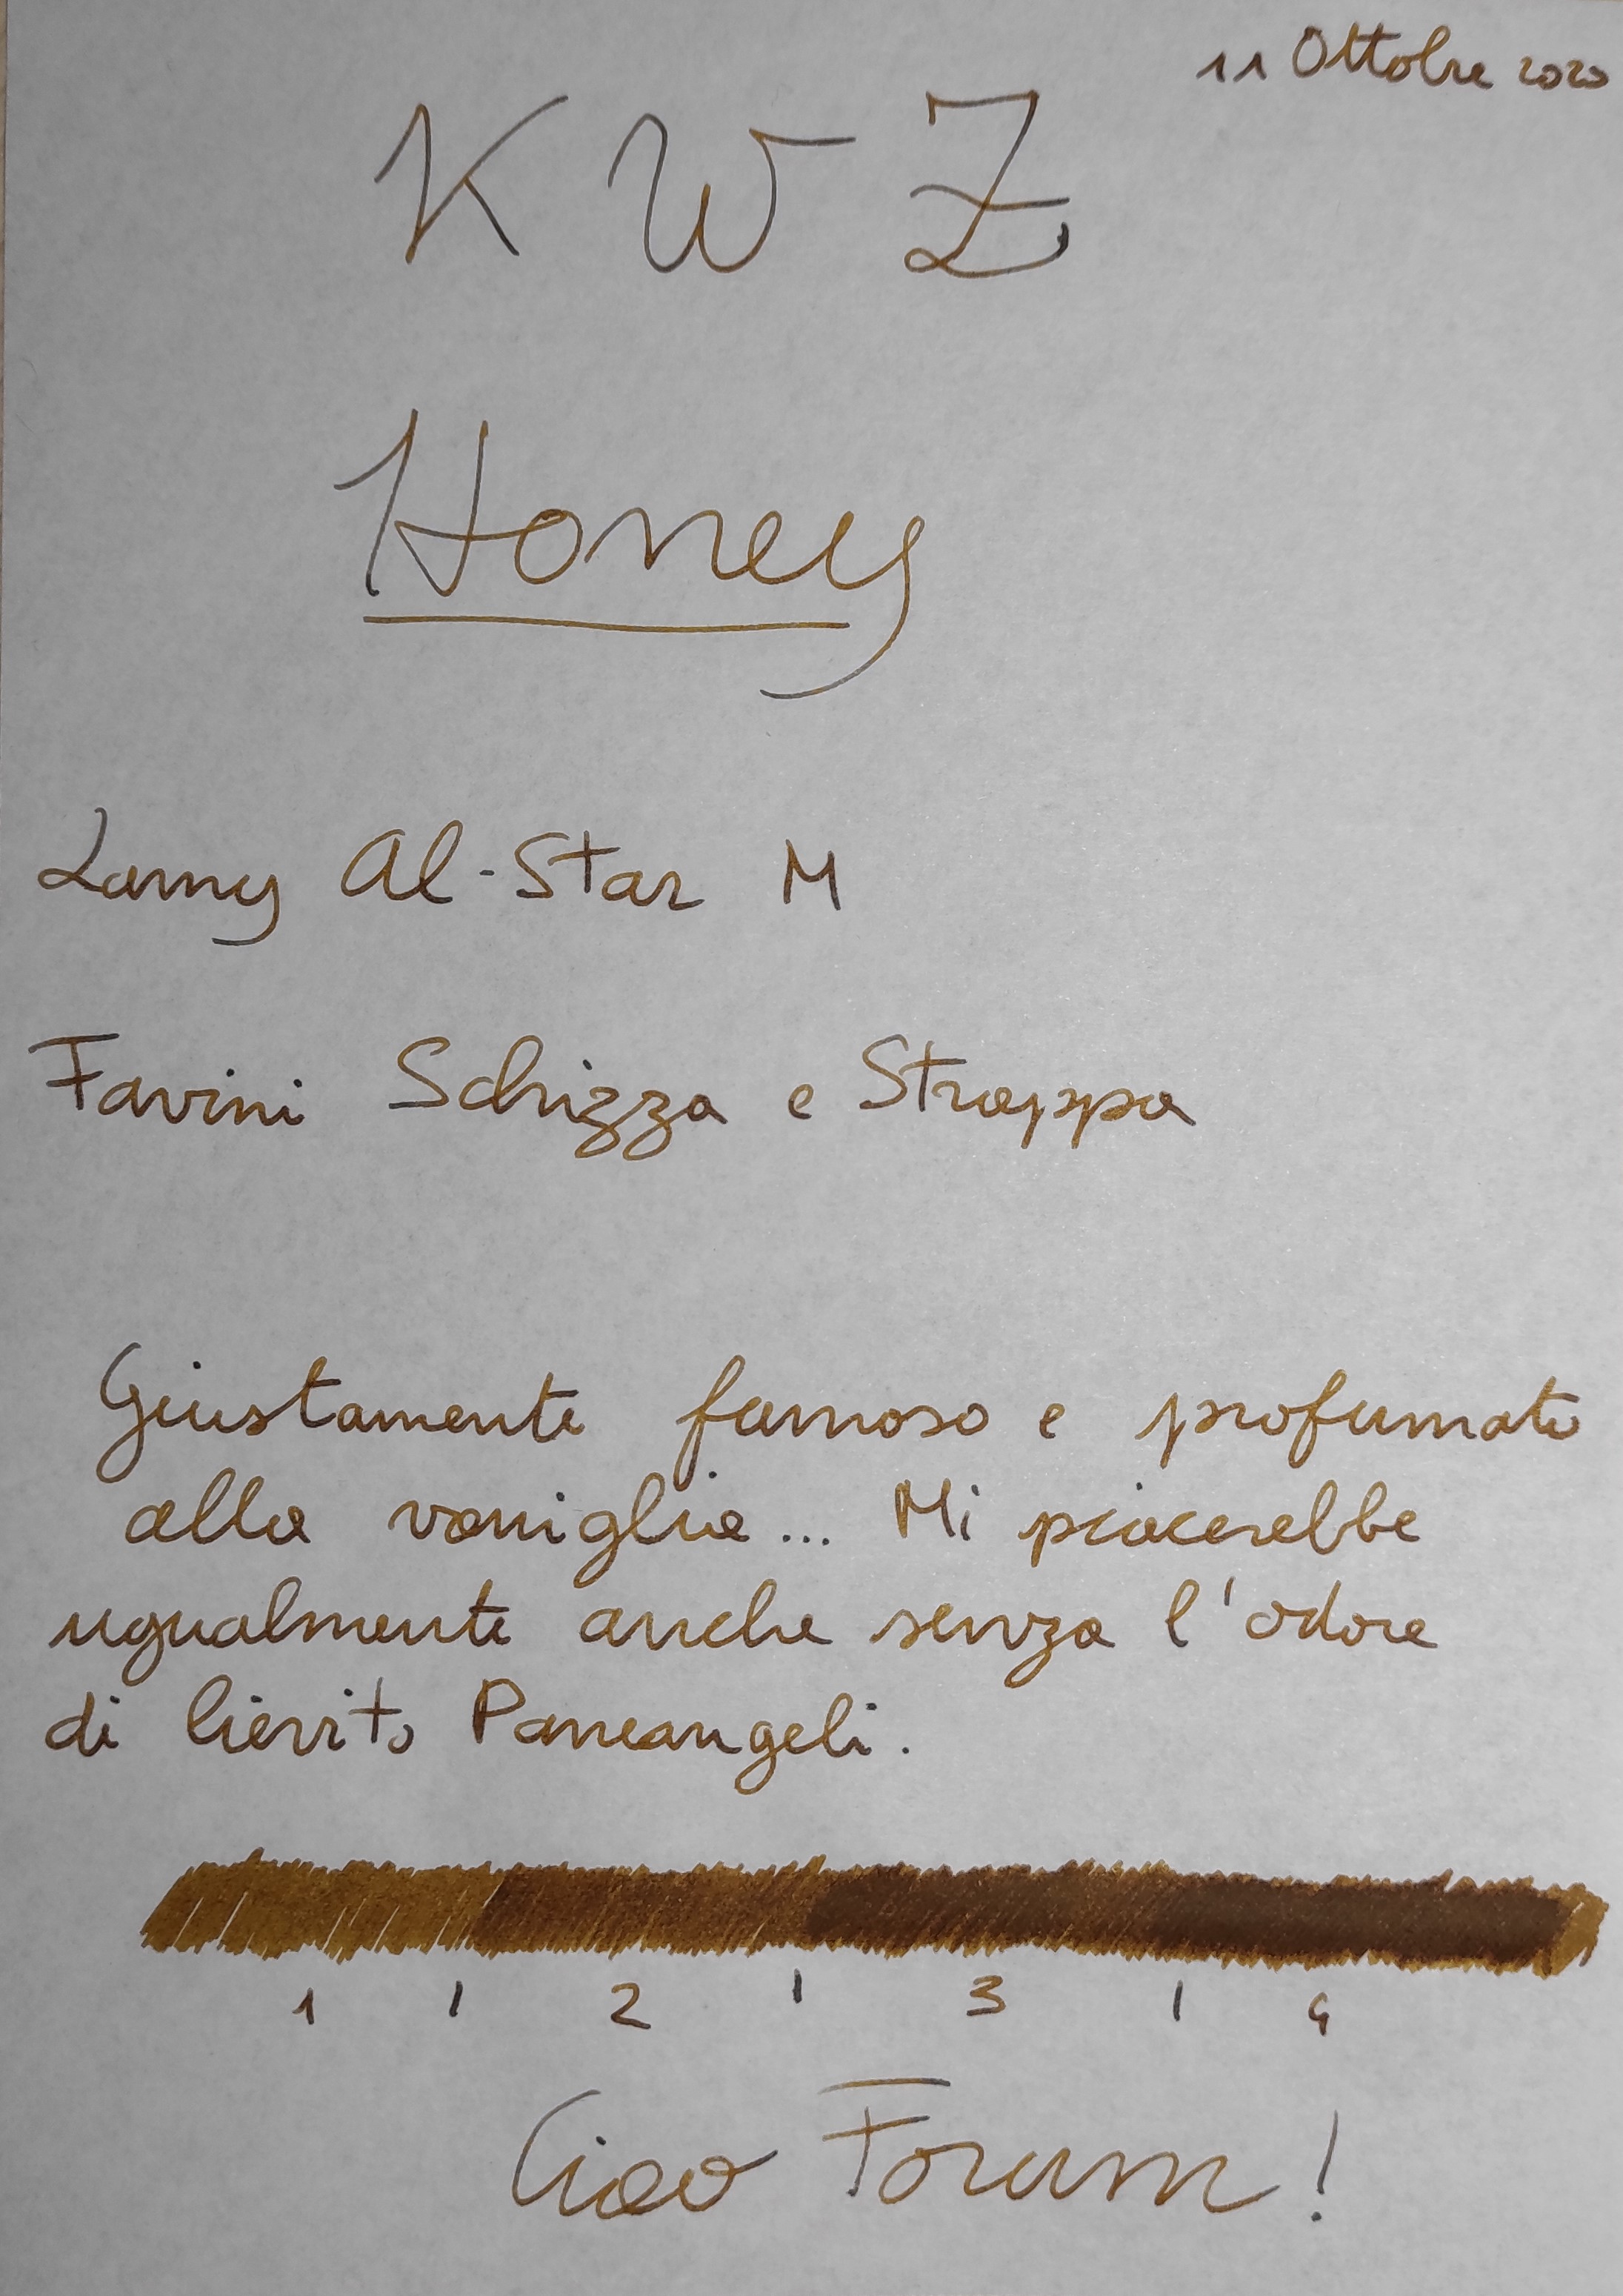 11 Ottobre 2020
K W Z
Honey
Lamy Al-Star M
Favini Schizza e Strappa
Giustamente famoso e profumato
alla vaniglia... Mi piacerebbe
ugualmente anche senza l'odore
di lievito Paneangeli.
1 | 2 | 3 | 4
Ciao Forum!